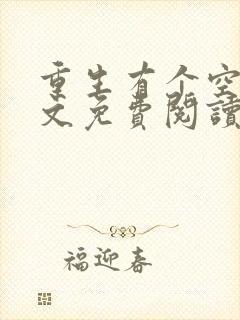 重生有个空
文免費閱讀
福迎春